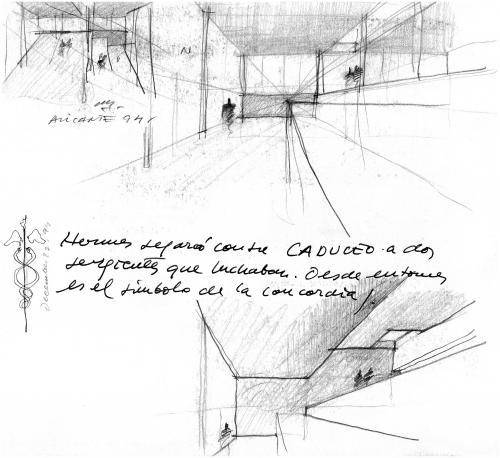 ALICANTE 94
Hermes separó con su CADUCEO a dos
serpientes que luchaban. Desde entonces
es el símbolo de la concordia